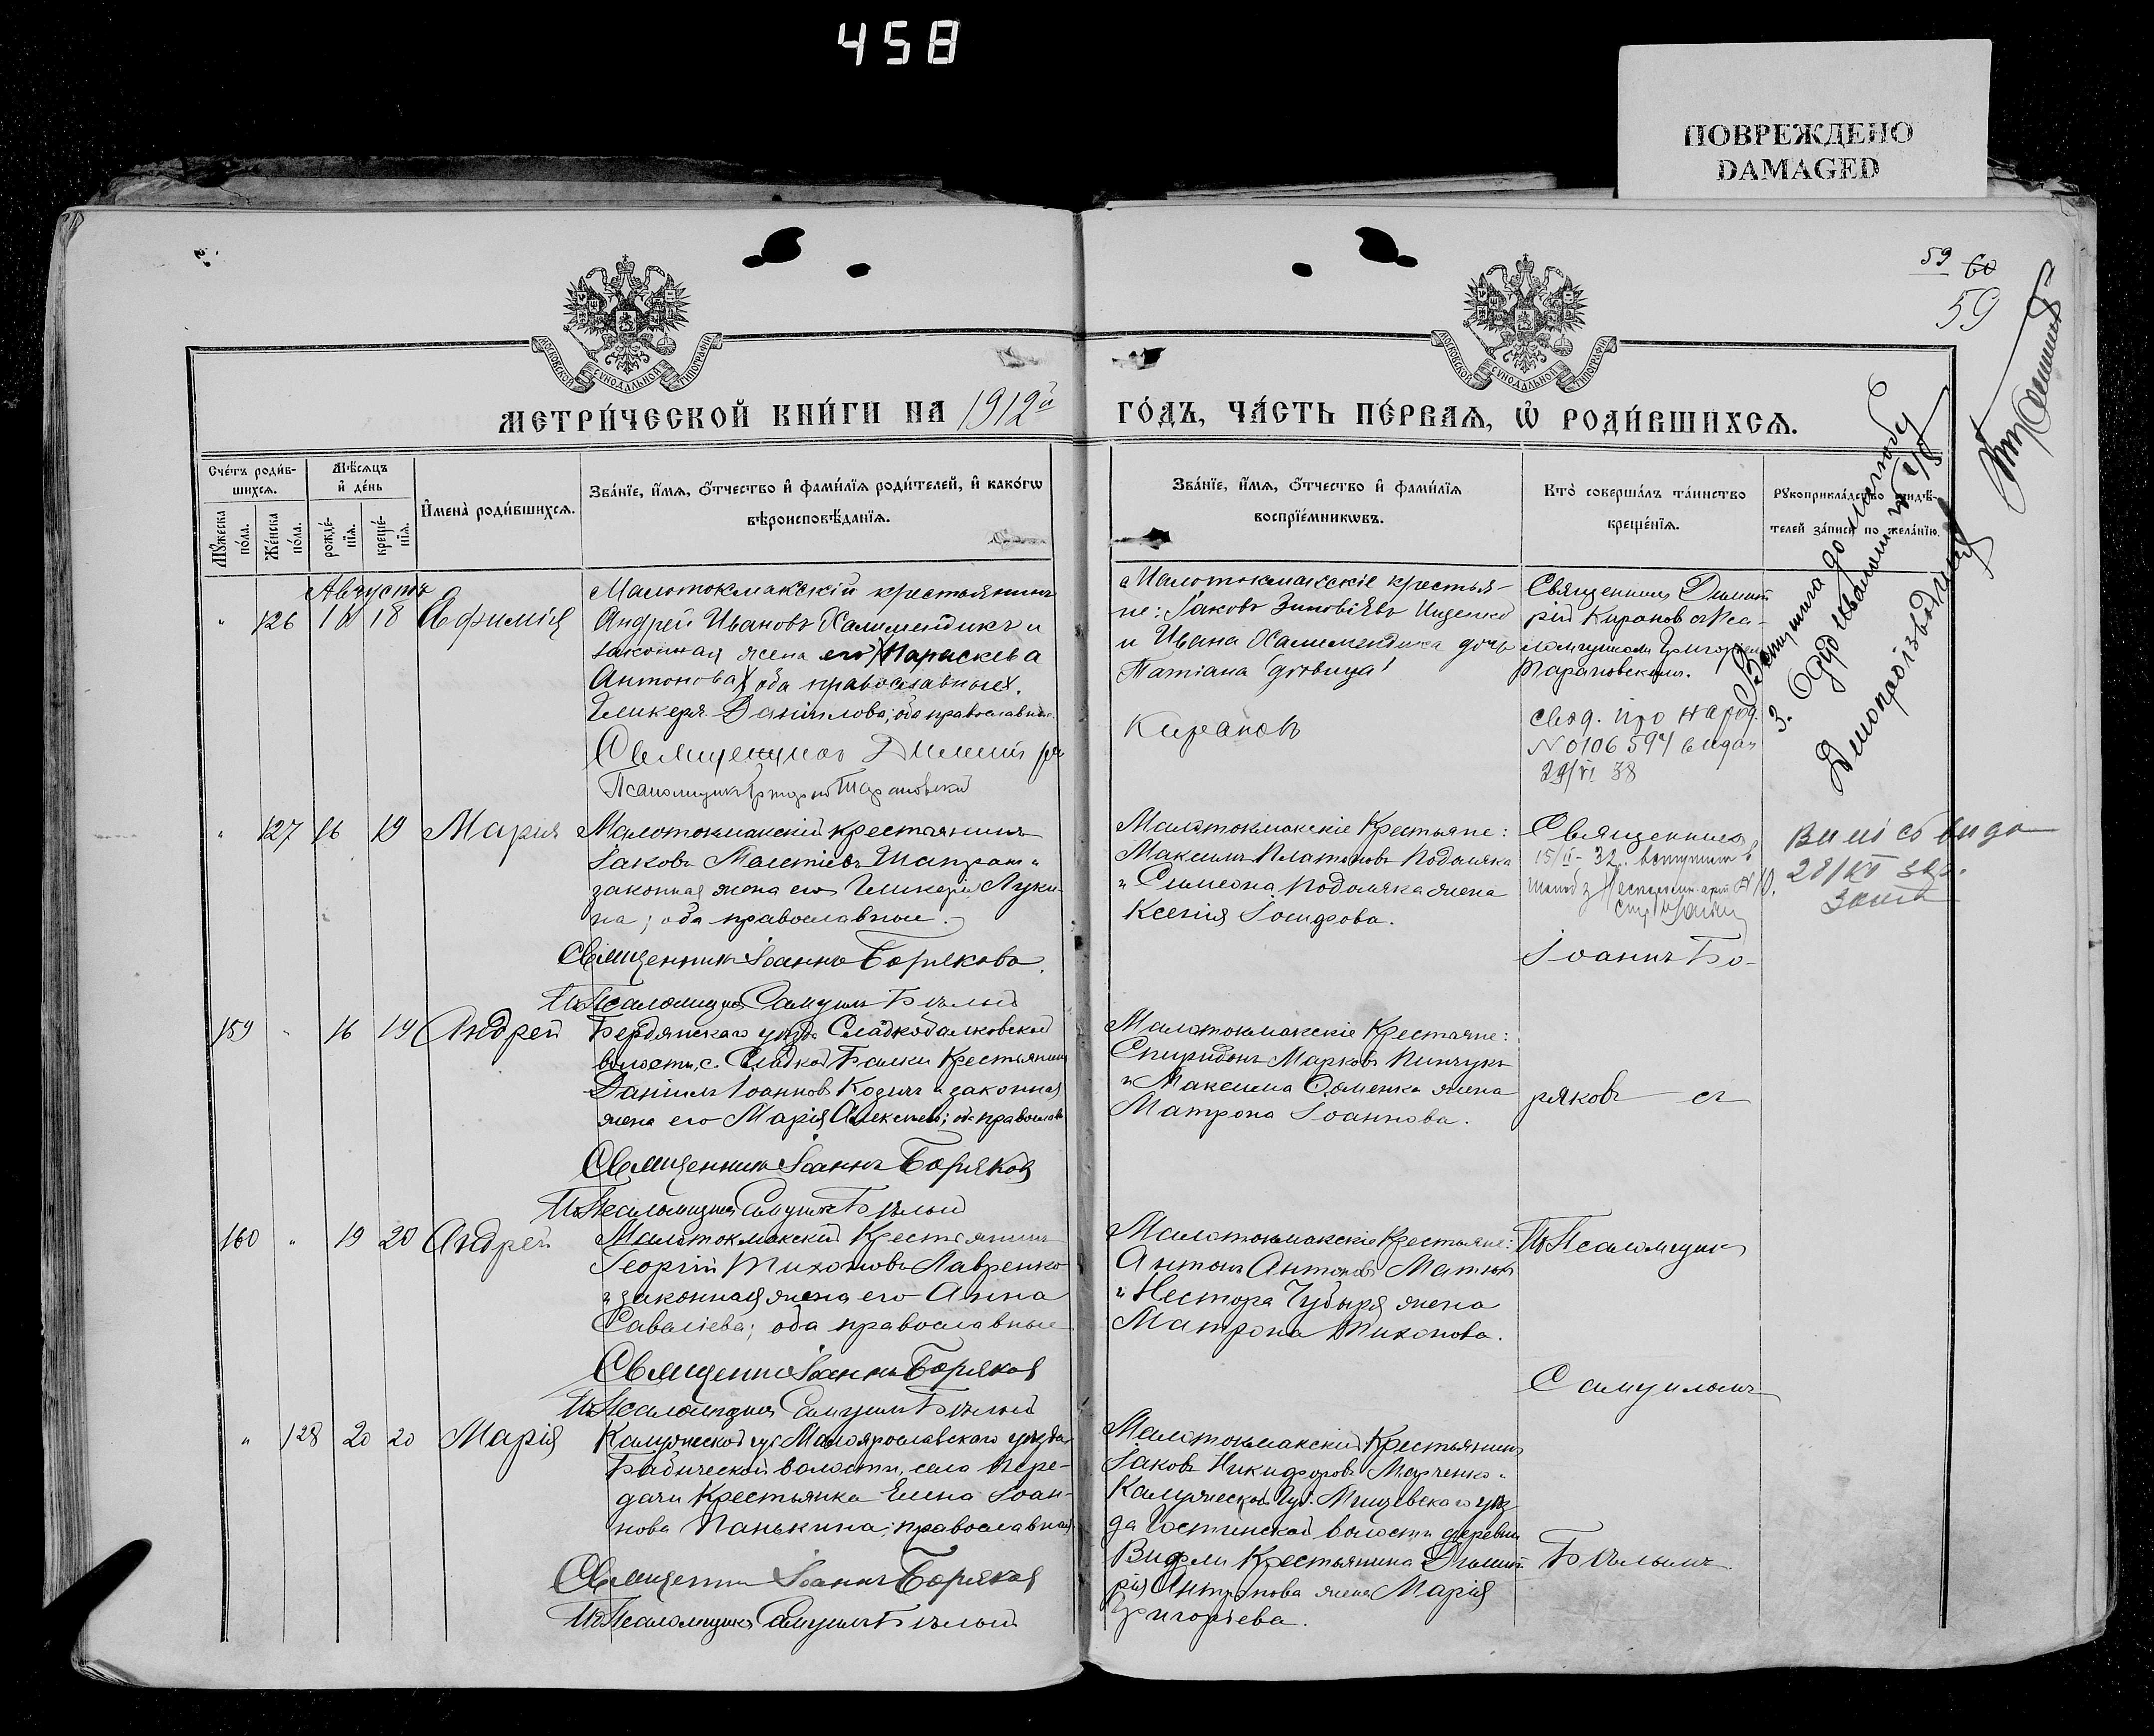 458
ПОВРЕЖДЕНО
DAMAGED
59 60
59
МОСКОВСКОЙ СѴНОДАЛЬНОЙ ТИПОГРАФІИ
МОСКОВСКОЙ СѴНОДАЛЬНОЙ ТИПОГРАФІИ
МЕТРИ́ЧЕСКОЙ КНИ́ГИ НА 1912й
ГО́ДЪ, ЧА́СТЬ ПЕ́РВАѦ, Ѡ҆ РОДИ́ВШИХСѦ.
Сче́тъ роди́в-
шихсѧ.
Мꙋ́жеска по́ла.
Же́нска по́ла.
Мѣ́сѧцъ и҆ де́нь
рожде́-нїѧ.
креще́-нїѧ.
И҆мена̀ роди́вшихсѧ.
Зва́нїе, и҆́мѧ, ѻ҆́тчество и҆ фами́лїѧ роди́телей, и҆ како́гѡ
вѣроисповѣ́данїѧ.
Зва́нїе, и҆́мѧ, ѻ҆́тчество и҆ фами́лїѧ
воспрїе́мникѡвъ.
Кто̀ соверша́лъ та́инство
креще́нїѧ.
Рꙋкоприкла́дство свидѣ́-
телей за́писи по жела́нїю.
Августъ
" 126 16 18 Афимія
Малотокмакскій крестьянинъ
Андрей Ивановъ Халимендикъ и
законная жена его (Параскева
Антонова) оба православные.
Гликерія Даніилова; оба православные.
Священникъ Димитрій
Псаломщикъ Григорій Тарановскій
Малотокмакскіе крестья-
не: Іаковъ Зиновіевъ Ищенко
и Ивана Халимендика дочь
Татіана (дѣвица)
Киранов
Священникъ Димит
рій Киранов с Пса-
ломщикомъ Григоріем
Тарановскимъ.
свод. про народ.
N 0106594 видан
29/VI 38
" 127 16 19 Марія
Малотокмакскій крестьянинъ
Іаковъ
законная жена его Гликерія Луки-
на; оба православные.
Священникъ Іоаннъ Боряковъ
И. Псаломщика Самуилъ Бѣлый
Малотокмакскіе Крестьяне:
Максимъ Платоновъ Подоляка
и Симеона Подоляка жена
Ксенія Іосифова.
Священникъ
15/II-32.
Іоаннъ Бо-
159 " 16 19 Андрей
Бердянскаго уѣзда Сладкобалковской
волости, с. Сладкой Балки Крестьянинъ
Даніилъ Іоанновъ Козичъ и законная
жена его Марія Алексіева; оба православн
Священникъ Іоаннъ Боряковъ
И. Псаломщика Самуилъ Бѣлый
Малотокмакскіе Крестьяне:
Спиридонъ Марковъ Пинчукъ
и Максима Семенка жена
Матрона Іоаннова.
ряковъ съ
160 " 19 20 Андрей
Малотокмакскій Крестьянинъ
Георгій Тихоновъ Лавренко
и законная жена его Анна
Савеліева; оба православные
Священникъ Іоаннъ Боряковъ
И. Псаломщика Самуилъ Бѣлый
Малотокмакскіе Крестьяне:
Антонъ Антоновъ Матюхъ
и Нестора Чубыря жена
Матрона Тихонова.
И. Псаломщика
Самуиломъ
" 128 20 20 Марія
Калужской губ. Малоярославскаго уѣзда
Бабической волости, села Пере-
дачи Крестьянка Елена Іоан-
нова Панькина; православная
Священникъ Іоаннъ Боряковъ
И. Псаломщика Самуилъ Бѣлый
Малотокмакскій Крестьянинъ
Іаковъ Никифоровъ Марченко и
Калужской Губ. Мищевскаго уѣз-
да Гостинской волости деревни
Вифли Крестьянина Димит-
рія Антонова жена Марія
Григоріева.
Бѣлымъ